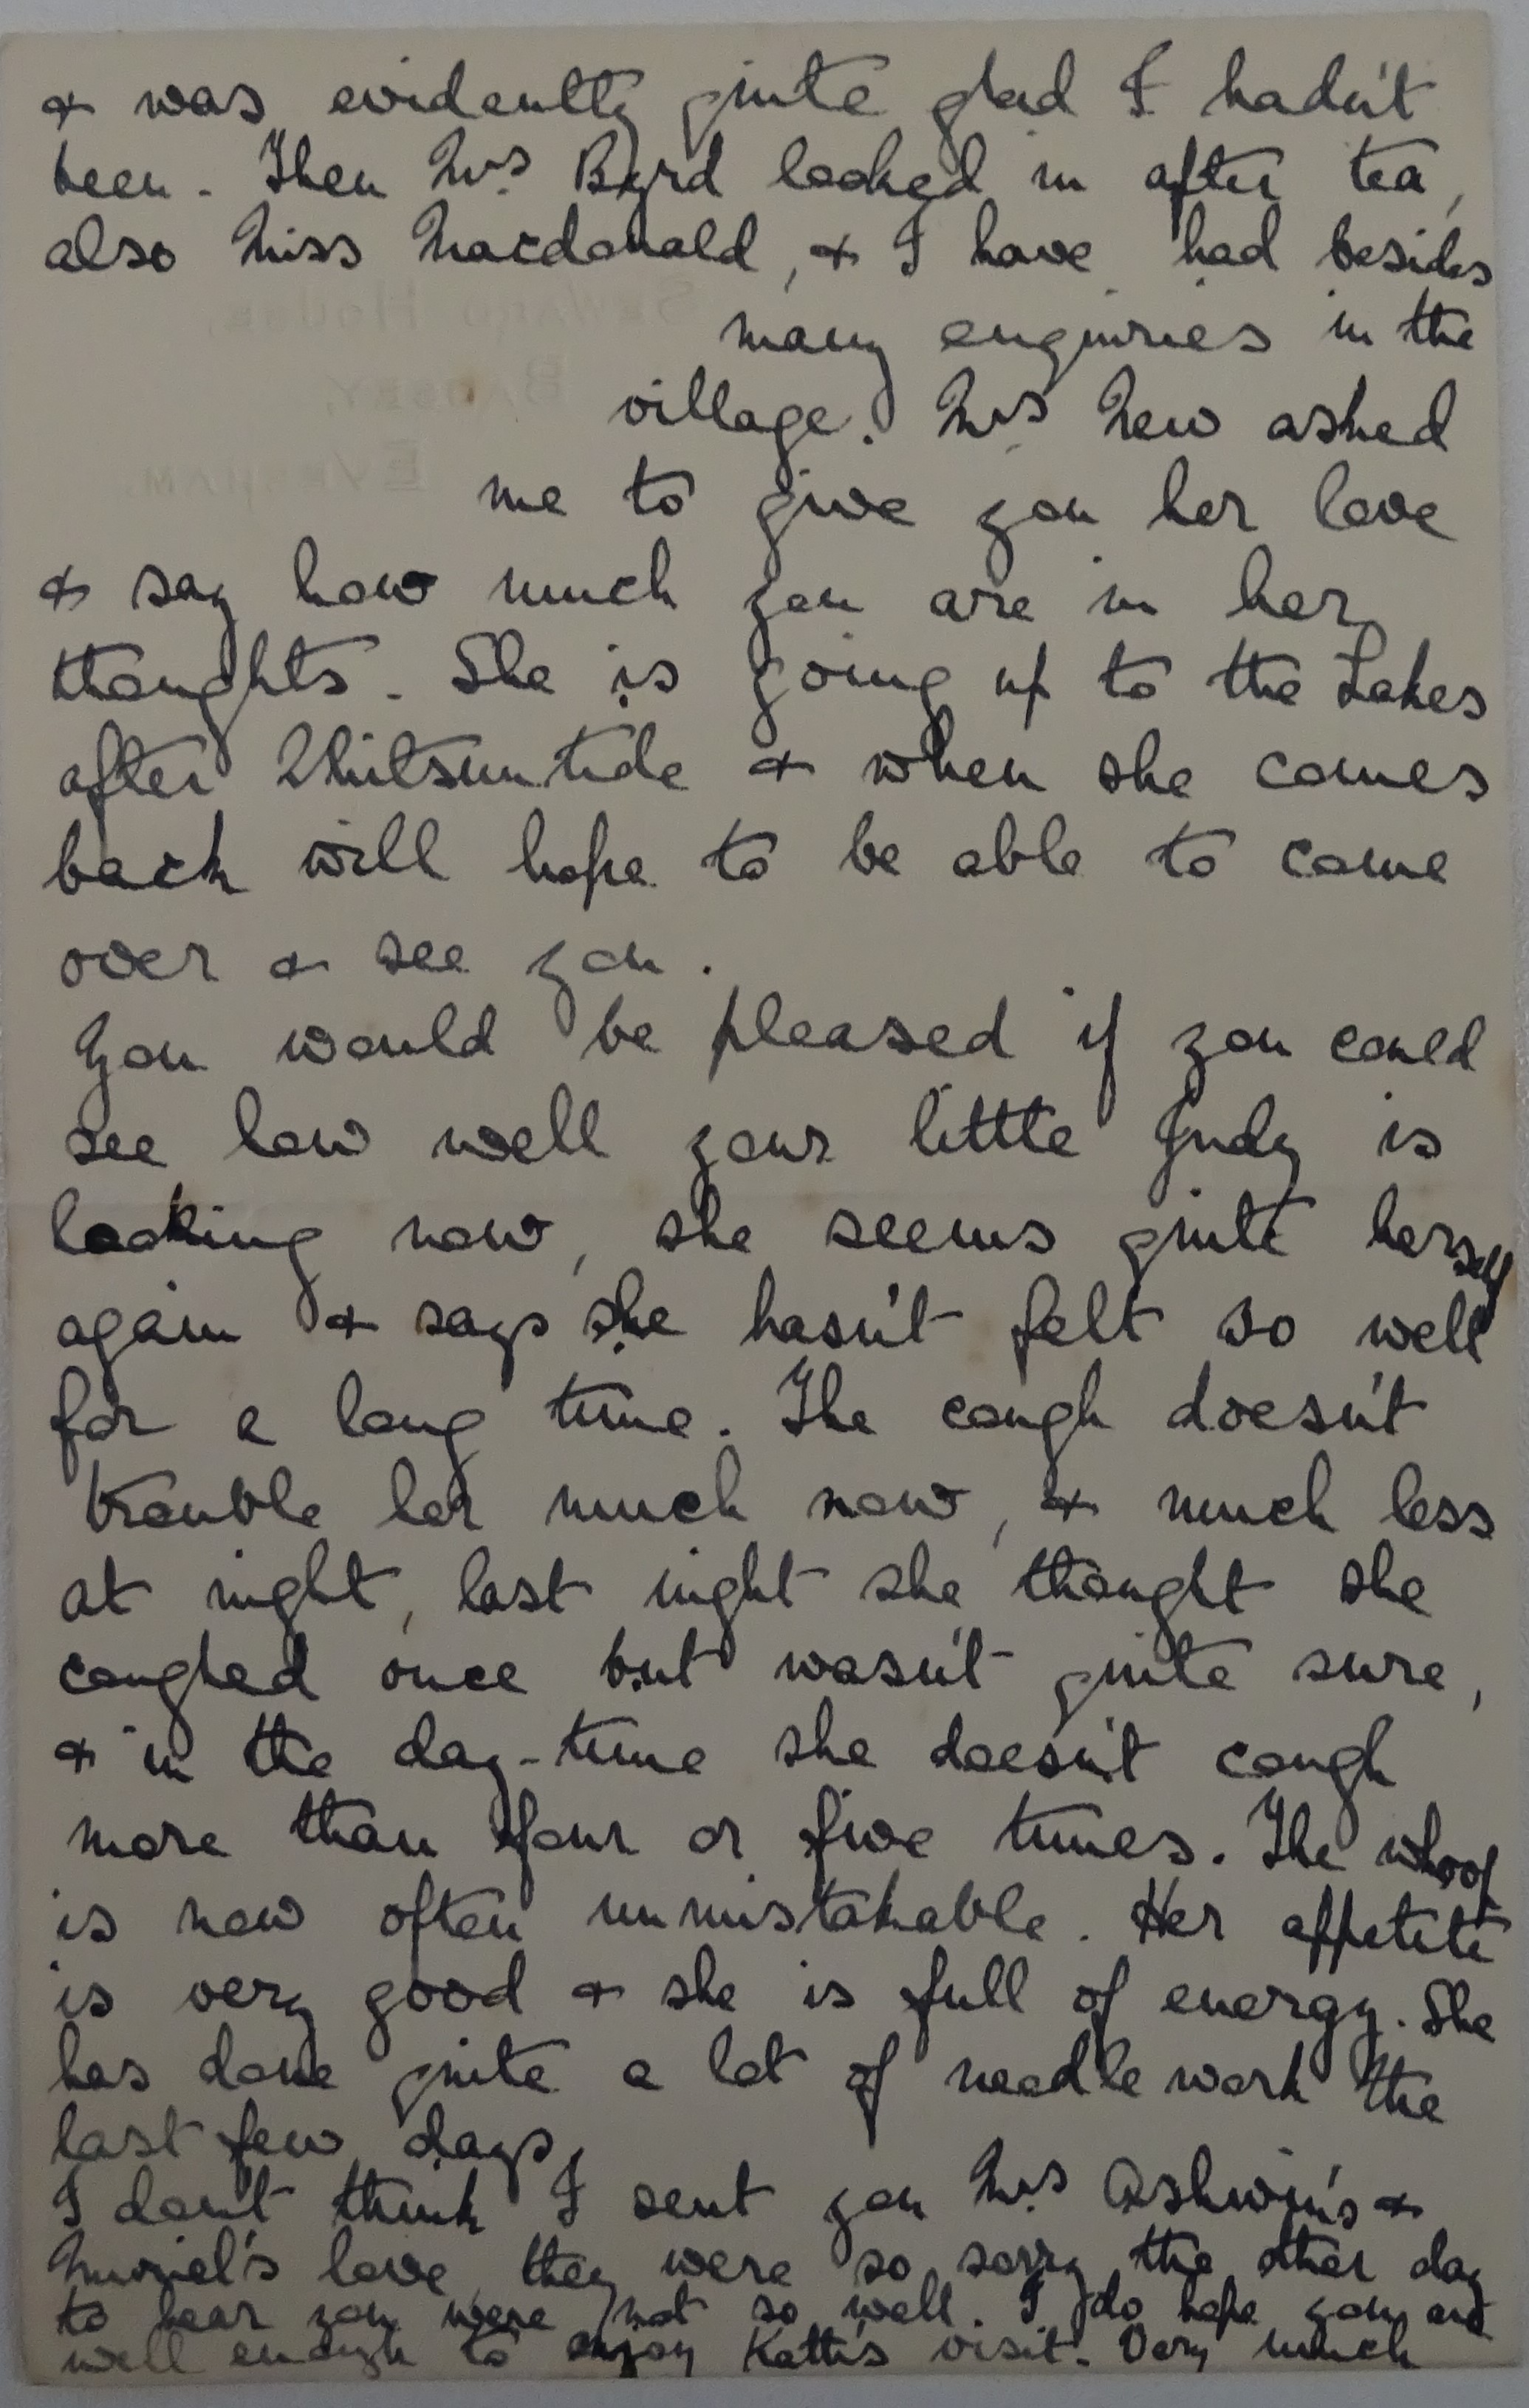 & was evidently quite glad I hadn't
been. Then Mrs Byrd looked in after tea,
also Miss Macdonald, & I have had besides
many enquiries in the
village. Mrs New asked
me to give you her love
& say how much you are in her
thoughts. She is going up to the Lakes
after Whitsuntide & when she comes
back will hope to be able to come
over & see you.
You would be pleased if you could
see how well your little Judy is
looking now, she seems quite herself
again & says she hasn't felt so well
for a long time. The cough doesn't
trouble her much now, & much less
at night, last night she thought she
coughed once but wasn't quite sure,
& in the day-time she doesn't cough
more than four or five times. The whoop
is now often unmistakable. Her appetite
is very good & she is full of energy. She
has done quite a lot of needlework the
last few days.
I don't think I sent you Mrs Ashwin's &
Muriel's love, they were so sorry the other day
to hear you were not so well. I do hope you are
well enough to enjoy Kath's visit. Very much
SEWARD HOUSE,
BADSEY,
EVESHAM.